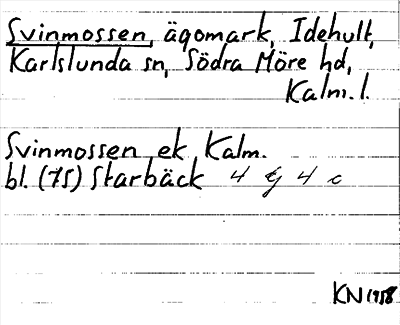 Svinmossen, ägomark, Idehult,
Karlslunda sn, Södra Möre hd,
Kalm. l.
Svinmossen ek Kalm.
bl. (75) Starbäck 4 G 4 c
KN 1958